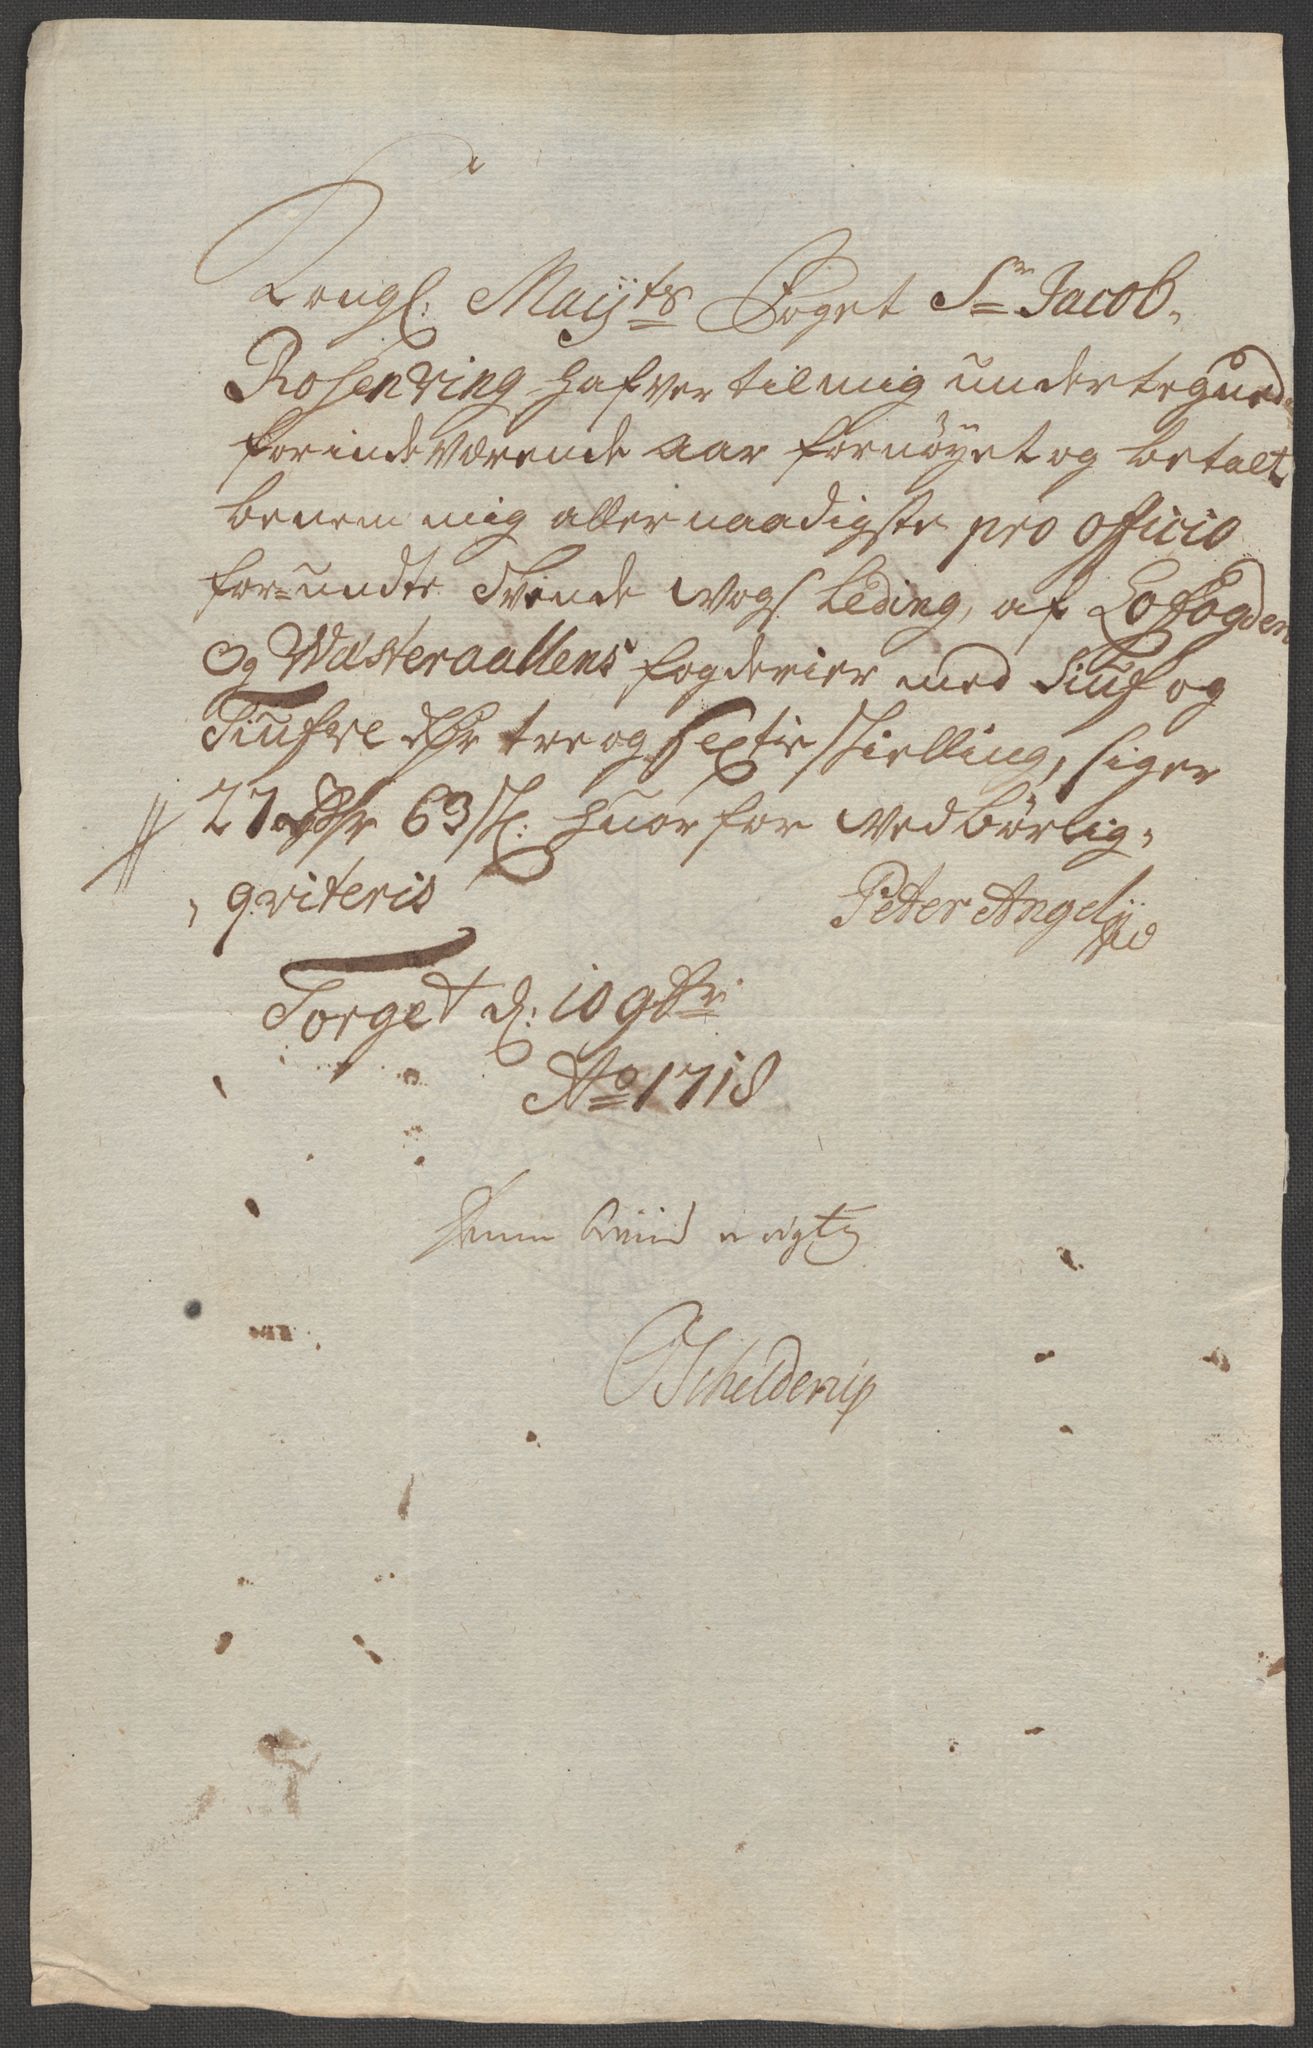 Kongl: Mayts Foget Sr Jacob
Rosenving hafver til mig undertegned
for indeværende aar fornøyet og betalt
benem mig allernaadigste pro officio
for=undte Tvende Wogs Leding, af Lofogden
og Wæsteraallens fogderier med Siuf og
Tiufve dlr tre og sextie skielling, siger
27 dlr 63 sk: huor for vedbørlig
qviteris
Peter Angel
Torget d: 10 9br
Ao 1718
Schielderup